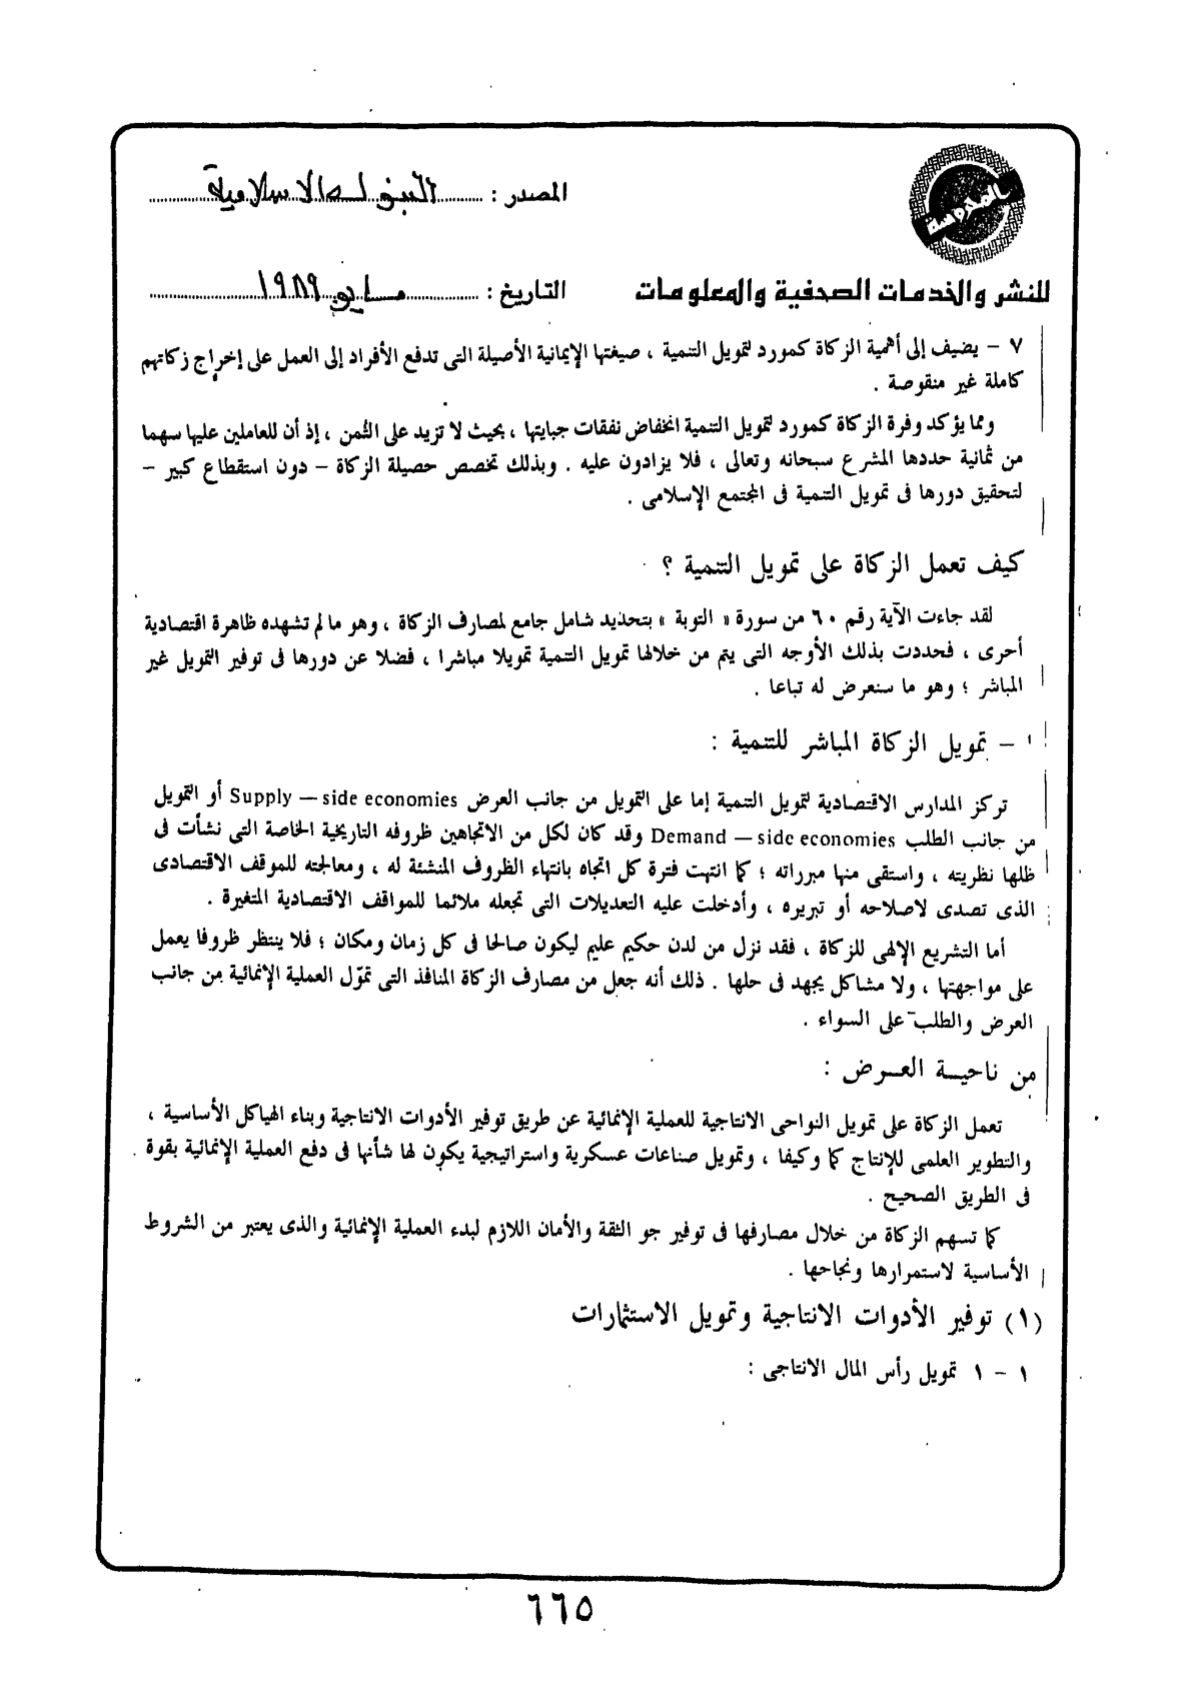 المصدر : البنوك الاسلامية
للنشر والخدمات الصحفية والمعلومات
التاريخ : مايو ١٩٨٩
٧ – يضيف إلى أهمية الزكاة كمورد لتمويل التنمية ، صيغتها الإيمانية الأصيلة التى تدفع الأفراد إلى العمل على إخراج زكاتهم
كاملة غير منقوصة .
ومما يؤكد وفرة الزكاة كمورد لتمويل التنمية انخفاض نفقات جبايتها ، بحيث لا تزيد على الثُمن ، إذ أن للعاملين عليها سهما
من ثمانية حددها المشرع سبحانه وتعالى ، فلا يزادون عليه . وبذلك تخصص حصيلة الزكاة – دون استقطاع كبير –
لتحقيق دورها فى تمويل التنمية فى المجتمع الإسلامى .
كيف تعمل الزكاة على تمويل التنمية ؟
لقد جاءت الآية رقم ٦٠ من سورة « التوبة » بتحديد شامل جامع لمصارف الزكاة ، وهو ما لم تشهده ظاهرة اقتصادية
أخرى ، فحددت بذلك الأوجه التى يتم من خلالها تمويل التنمية تمويلا مباشرا ، فضلا عن دورها فى توفير التمويل غير
المباشر ؛ وهو ما سنعرض له تباعا .
١ – تمويل الزكاة المباشر للتنمية :
تركز المدارس الاقتصادية لتمويل التنمية إما على التمويل من جانب العرض Supply — side economies أو التمويل
من جانب الطلب Demand — side economies وقد كان لكل من الاتجاهين ظروفه التاريخية الخاصة التى نشأت فى
ظلها نظريته ، واستقى منها مبرراته ؛ كما انتهت فترة كل اتجاه بانتهاء الظروف المنشئة له ، ومعالجته للموقف الاقتصادى
الذى تصدى لاصلاحه أو تبريره ، وأدخلت عليه التعديلات التى تجعله ملائما للمواقف الاقتصادية المتغيرة .
أما التشريع الإلهى للزكاة ، فقد نزل من لدن حكيم عليم ليكون صالحا فى كل زمان ومكان ؛ فلا ينتظر ظروفا يعمل
على مواجهتها ، ولا مشاكل يجهد فى حلها . ذلك أنه جعل من مصارف الزكاة المنافذ التى تموّل العملية الإنمائية من جانب
العرض والطلب على السواء .
من ناحيـة العـرض :
تعمل الزكاة على تمويل النواحى الانتاجية للعملية الإنمائية عن طريق توفير الأدوات الانتاجية وبناء الهياكل الأساسية ،
والتطوير العلمى للإنتاج كما وكيفا ، وتمويل صناعات عسكرية واستراتيجية يكون لها شأنها فى دفع العملية الإنمائية بقوة
فى الطريق الصحيح .
كما تسهم الزكاة من خلال مصارفها فى توفير جو الثقة والأمان اللازم لبدء العملية الإنمائية والذى يعتبر من الشروط
الأساسية لاستمرارها ونجاحها .
(١) توفير الأدوات الانتاجية وتمويل الاستثمارات
١ – ١ تمويل رأس المال الانتاجى :
٦٦٥